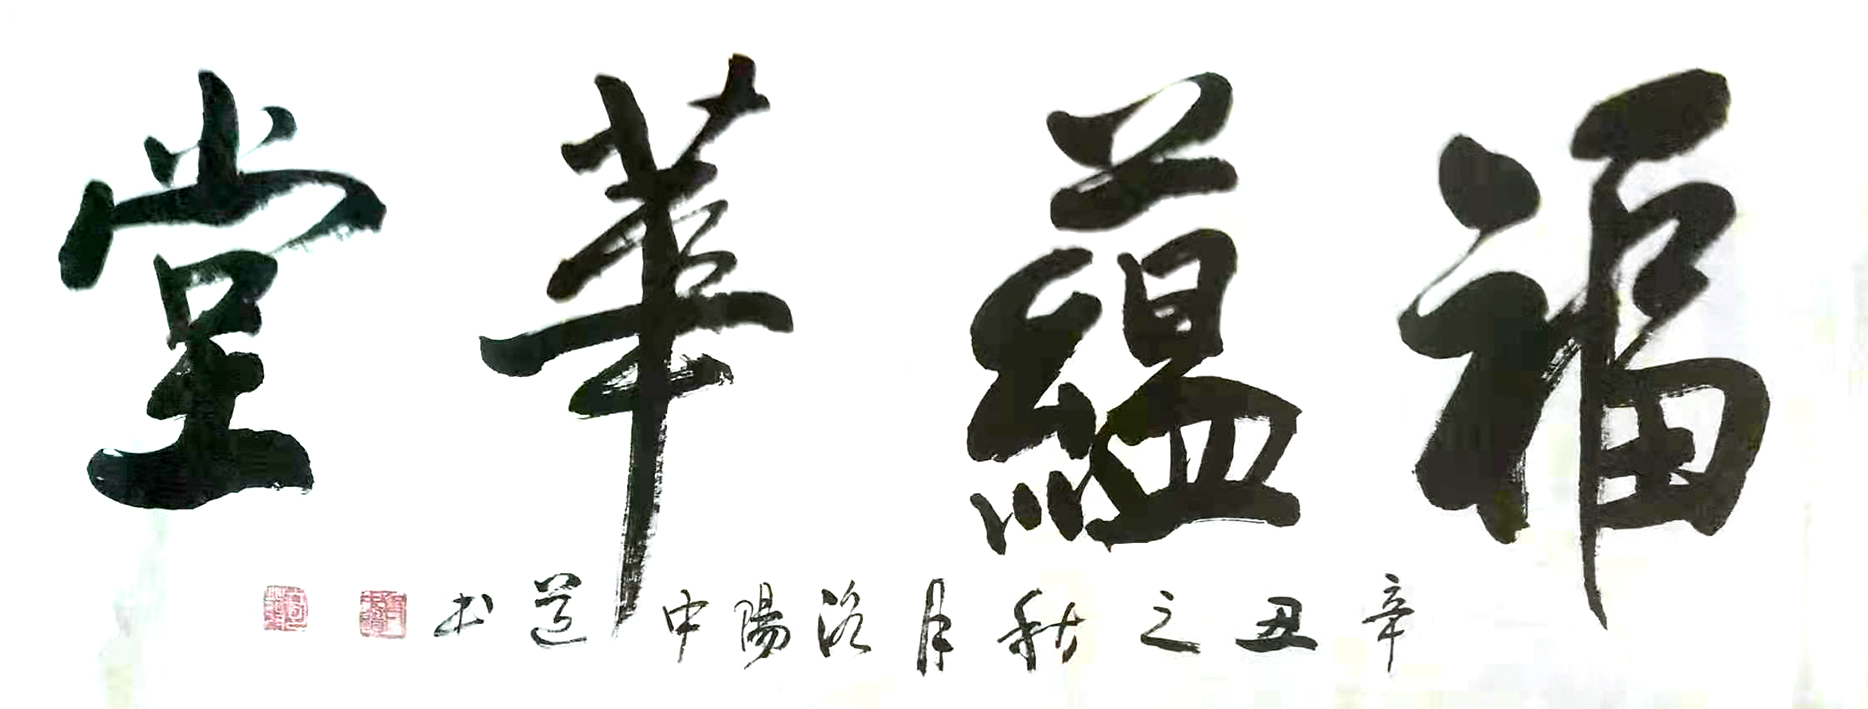 福蘊華堂
辛丑之秋月洛陽中道书